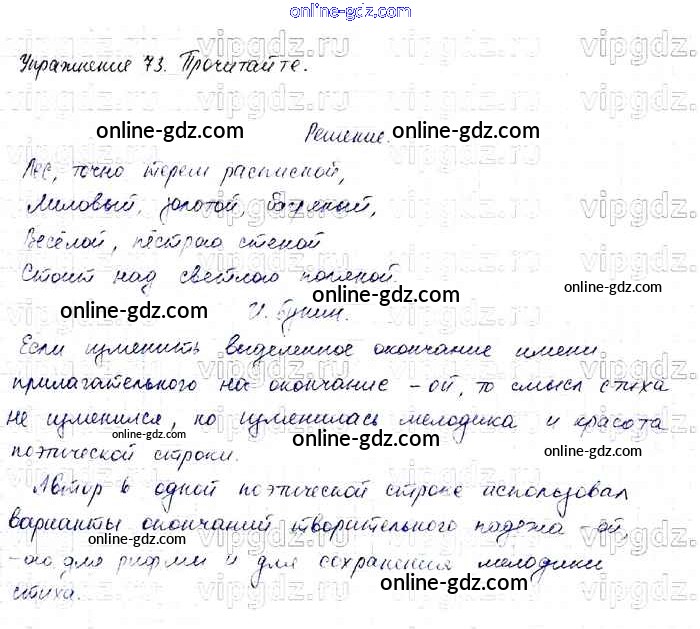 online-gdz.com
Упражнение 73. Прочитайте.
online-gdz.com online-gdz.com
Решение.
Лес, точно терем расписной,
Лиловый, золотой, багряный,
Весёлой, пёстрою стеной
Стоит над светлою поляной
online-gdz.com И. Бунин. online-gdz.com
Если изменить выделенное окончание имени
прилагательного на окончание -ой, то смысл стиха
не изменился, но изменилась мелодика и красота
online-gdz.com online-gdz.com online-gdz.com
поэтической строки.
Автор в одной поэтической строке использовал
варианты окончаний творительного падежа -ой,
online-gdz.com online-gdz.com
-ою для рифмы и для сохранения мелодики
online-gdz.com
стиха.